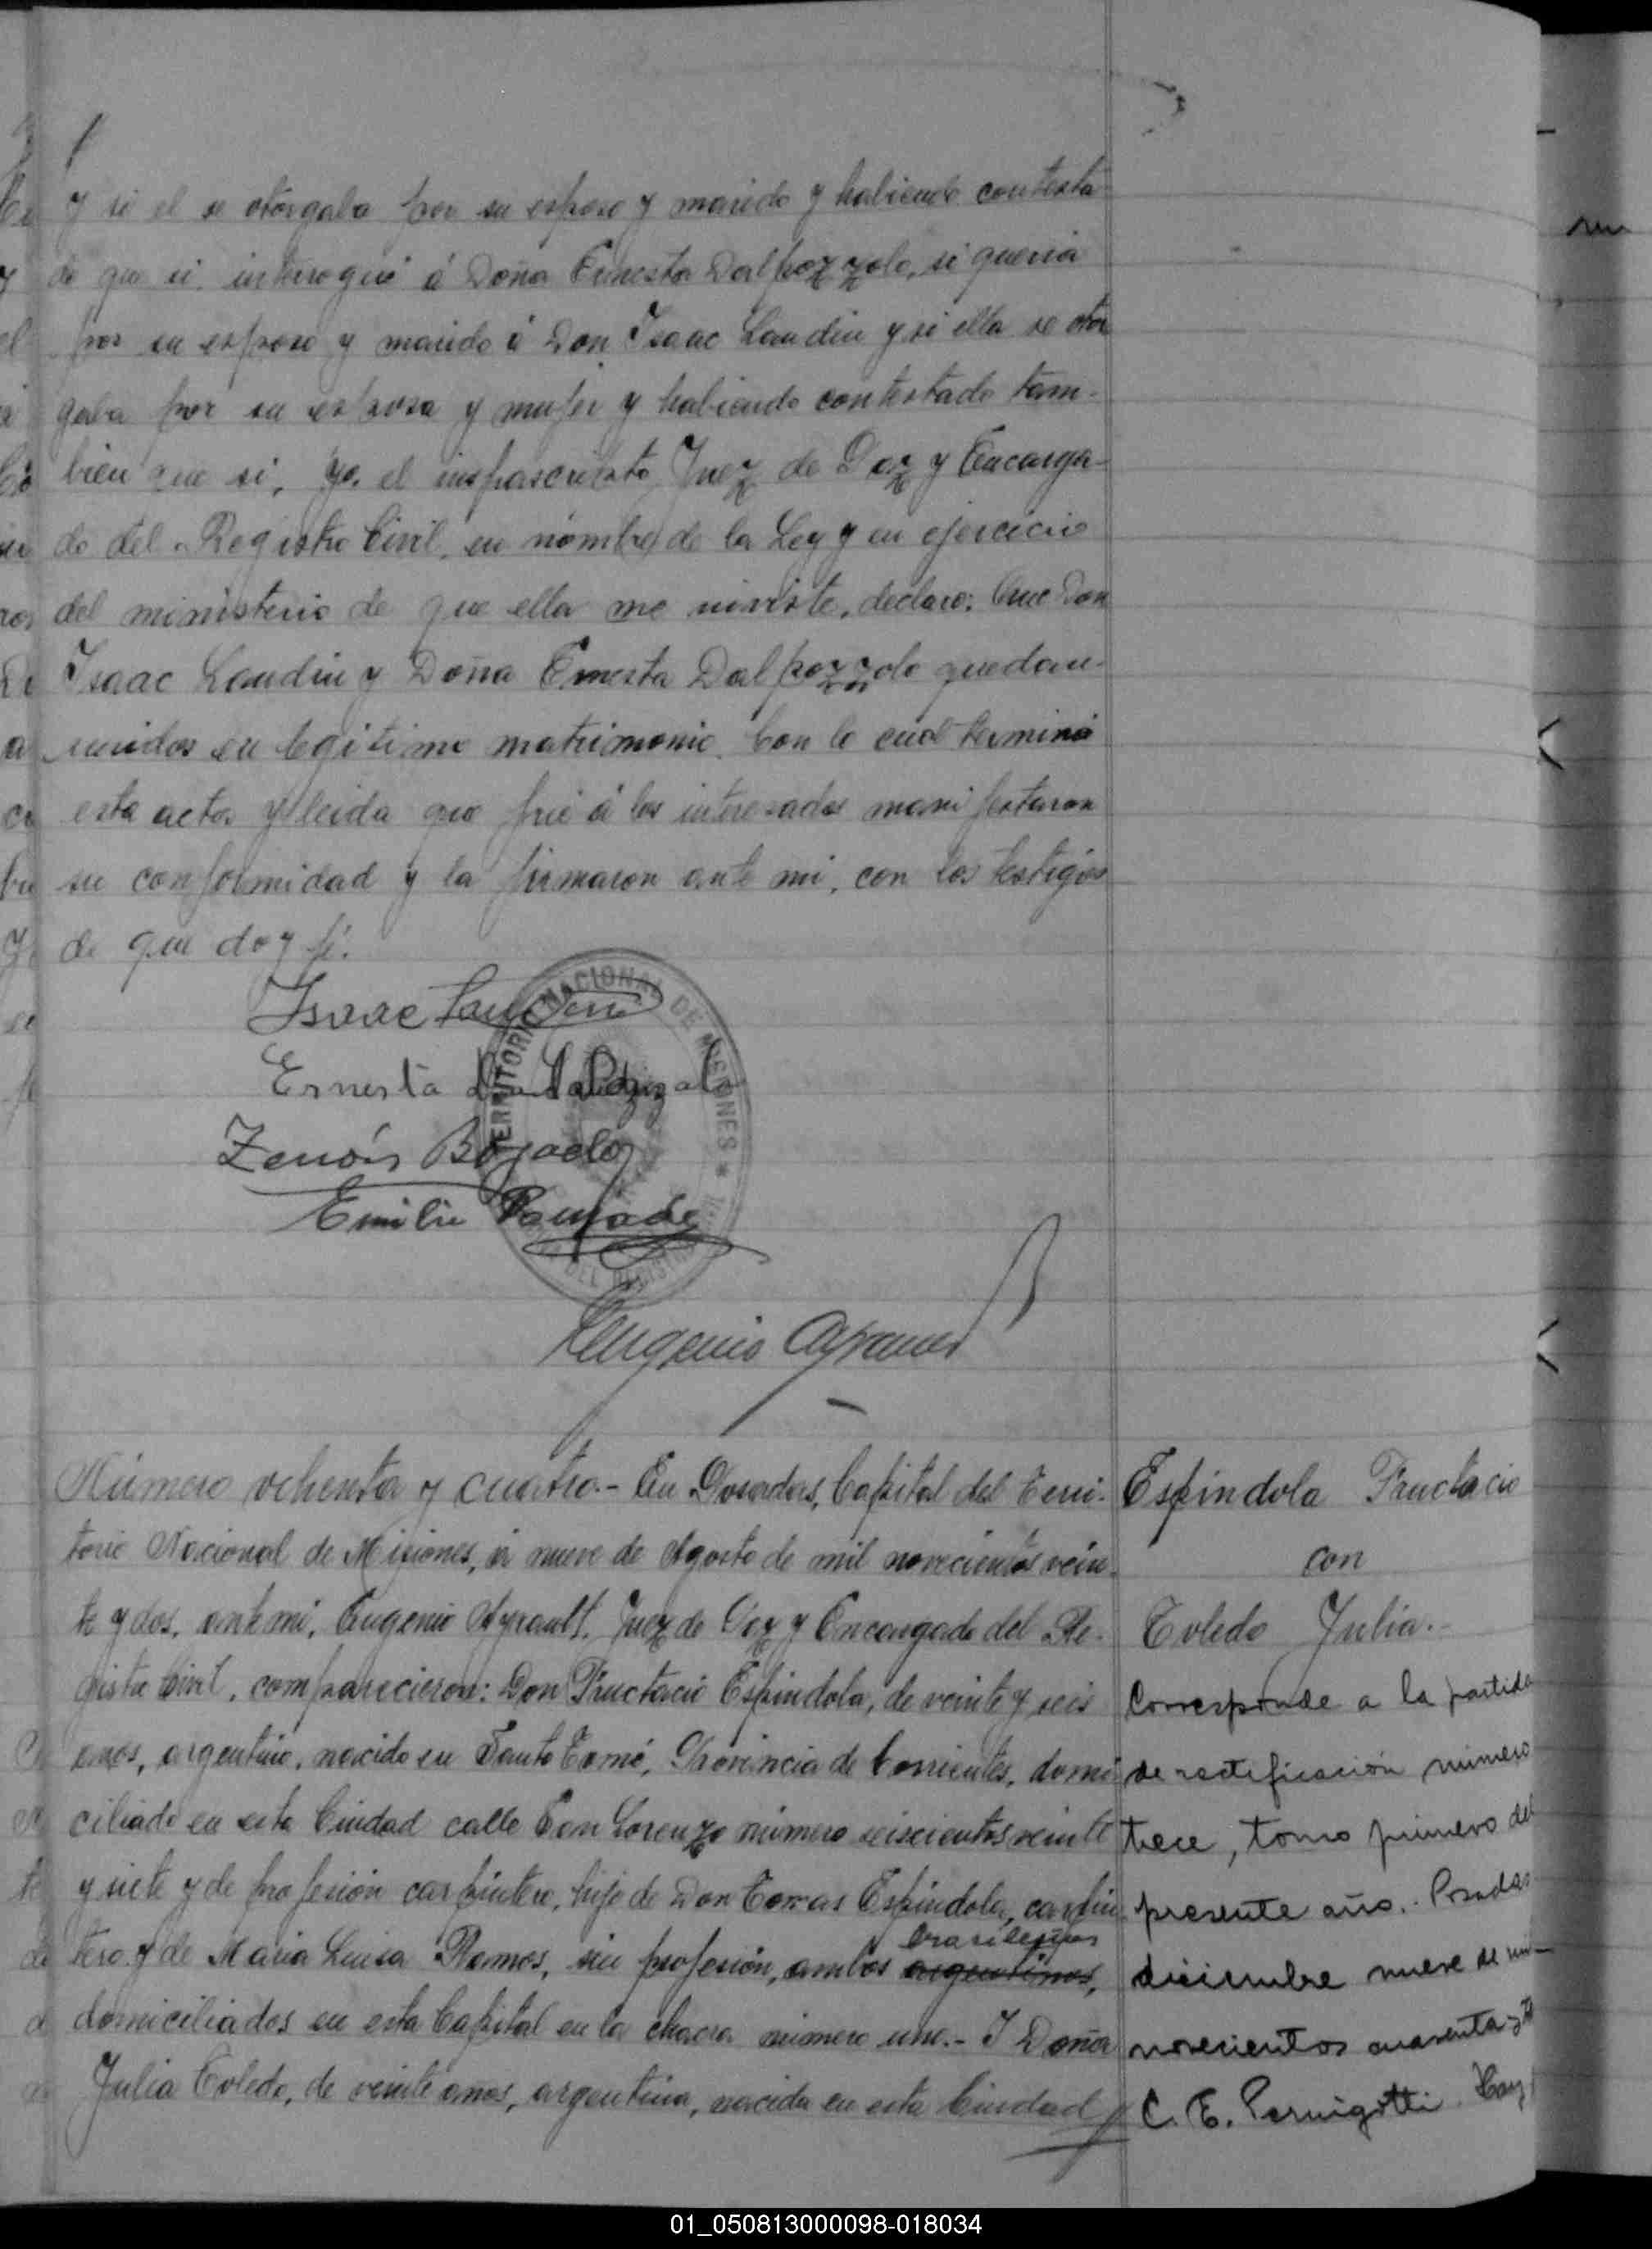 y si el se otorgaba por su esposo y marido y habiendo contesta
do que si, interrogué á Doña Ernesta Dalpozzolo, si queria
por su esposo y marido á Don Isaac Landin y si ella se otor
gaba por su esposa y mujer y habiendo contestado tam-
bien que si, yo, el infrascripto Juez de Paz y Encarga-
do del Registro Civil, en nombre de la Ley y en ejercicio
del ministerio de que ella me inviste, declaro: Que Don
Isaac Landin y Doña Ernesta Dalpozzolo quedan
unidos en legitimo matrimonio. Con lo cual terminó
esta acta y leida que fué á los interesados manifestaron
su conformidad y la firmaron ante mi, con los testigos
de que doy fé.
TERRITORIO NACIONAL DE MISIONES
DEL REGISTRO
Isaac Landin
Ernesta
Zenón
Emilio
Eugenio Ayrault
Número ochenta y cuatro.- En Posadas, Capital del Terri-
torio Nacional de Misiones, á nueve de Agosto de mil novecientos vein-
te y dos, ante mi, Eugenio Ayrault, Juez de Paz y Encargado del Re-
gistro Civil, comparecieron: Don Fructacio Espindola, de veinte y seis
anos, argentino, nacido en Santo Tomé, Provincia de Corrientes, domi
ciliado en esta Ciudad calle San Lorenzo número seiscientos veinte
y siete y de profesión carpintero, hijo de Don Tomas Espindola, carpin
tero y de Maria Luisa Ramos, sin profesión, ambos argentinos, brasileños
domiciliados en esta Capital en la chacra número uno.- I Doña
Julia Toledo, de veinte anos, argentina, nacida en esta Ciudad
Espindola Fructacio
con
Toledo Julia.-
Corresponde a la partida
de rectificación número
trece, tomo primero del
presente año.- Posadas
diciembre nueve de mil
novecientos cuarenta y
C. E. Pernigotti. Hay
01_050813000098-018034